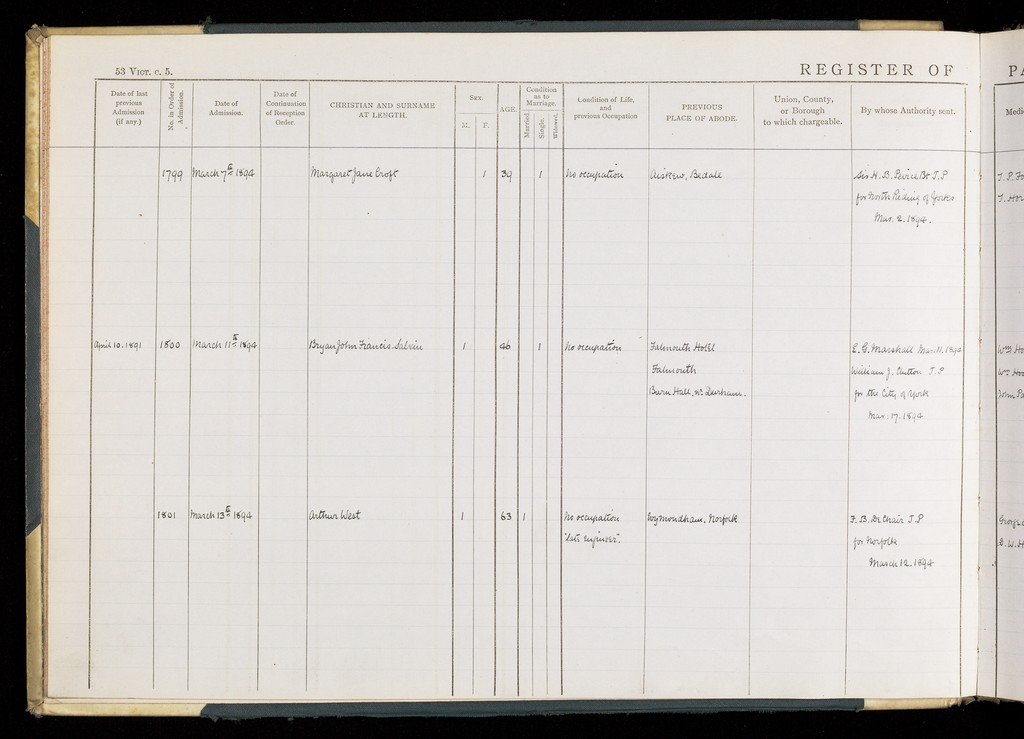 53 VICT. c. 5.
REGISTER OF
PA
Date of last previous Admission (if any.)
No. in Order of Admission.
Date of Admission.
Date of Continuation of Reception Order.
CHRISTIAN AND SURNAME AT LENGTH.
SEX.
M.
F.
AGE.
Condition as to Marriage.
Married.
Single.
Widowed.
Condition of Life, and previous Occupation
PREVIOUS PLACE OF ABODE.
Union, County, or Borough to which chargeable.
By whose Authority sent.
Medi
1799 March 7th 1894 Margaret Jane Croft 1 39 1 No occupation Aiskew, Bedale Sir H. B. Peirce Bt J.P
for North Riding of Yorks
Mar. 2. 1894.
April 10. 1891 1800 March 11th 1894 Bryan John Francis Salvin 1 46 1 No occupation Falmouth Hotel E. G. Marshall Mar. 11. 1894
Falmouth William J. Clutton J.P
Burn Hall, nr. Durham. for the City of York
Mar. 17. 1894
1801 March 13th 1894 Arthur West 1 63 1 No occupation Wymondham, Norfolk F. B. De Chair J.P
"late engineer". for Norfolk
March 12. 1894